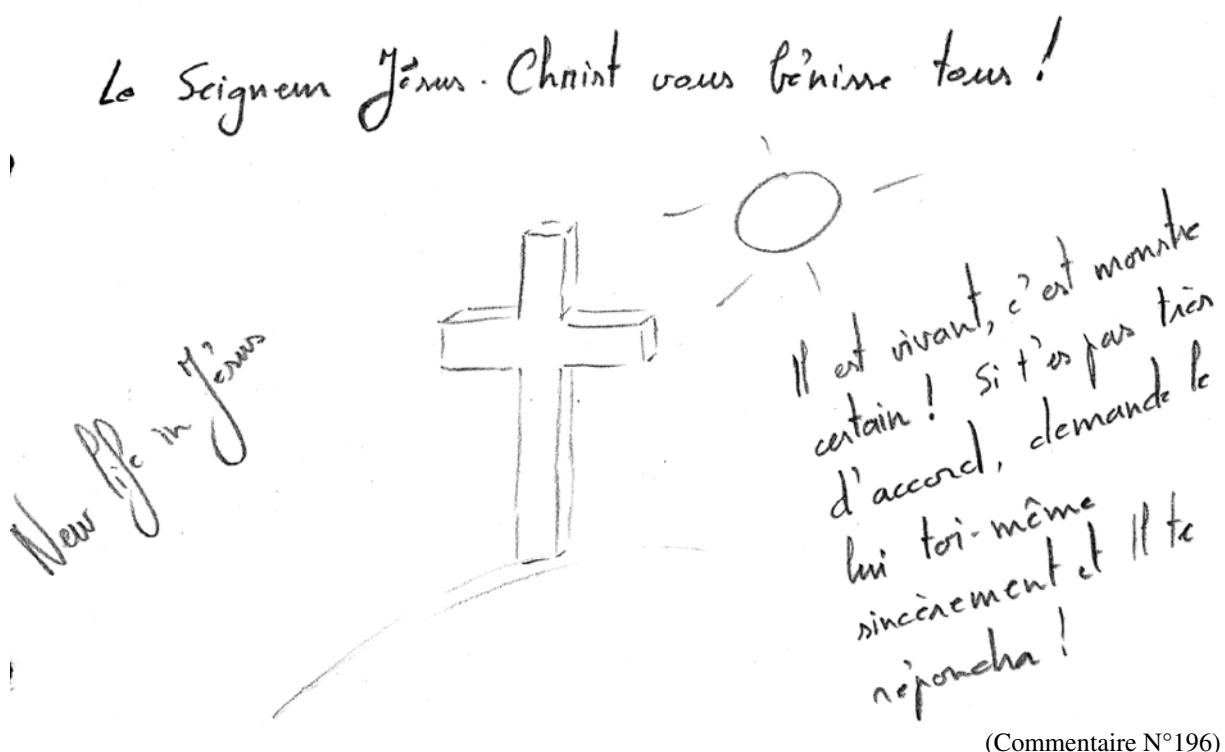 Le Seigneur Jésus-Christ vous bénisse tous !
New life in Jésus
Il est vivant, c'est monstre
certain ! Si t'es pas très
d'accord, demande le
lui toi-même
sincèrement et Il te
répondra !
(Commentaire N°196)